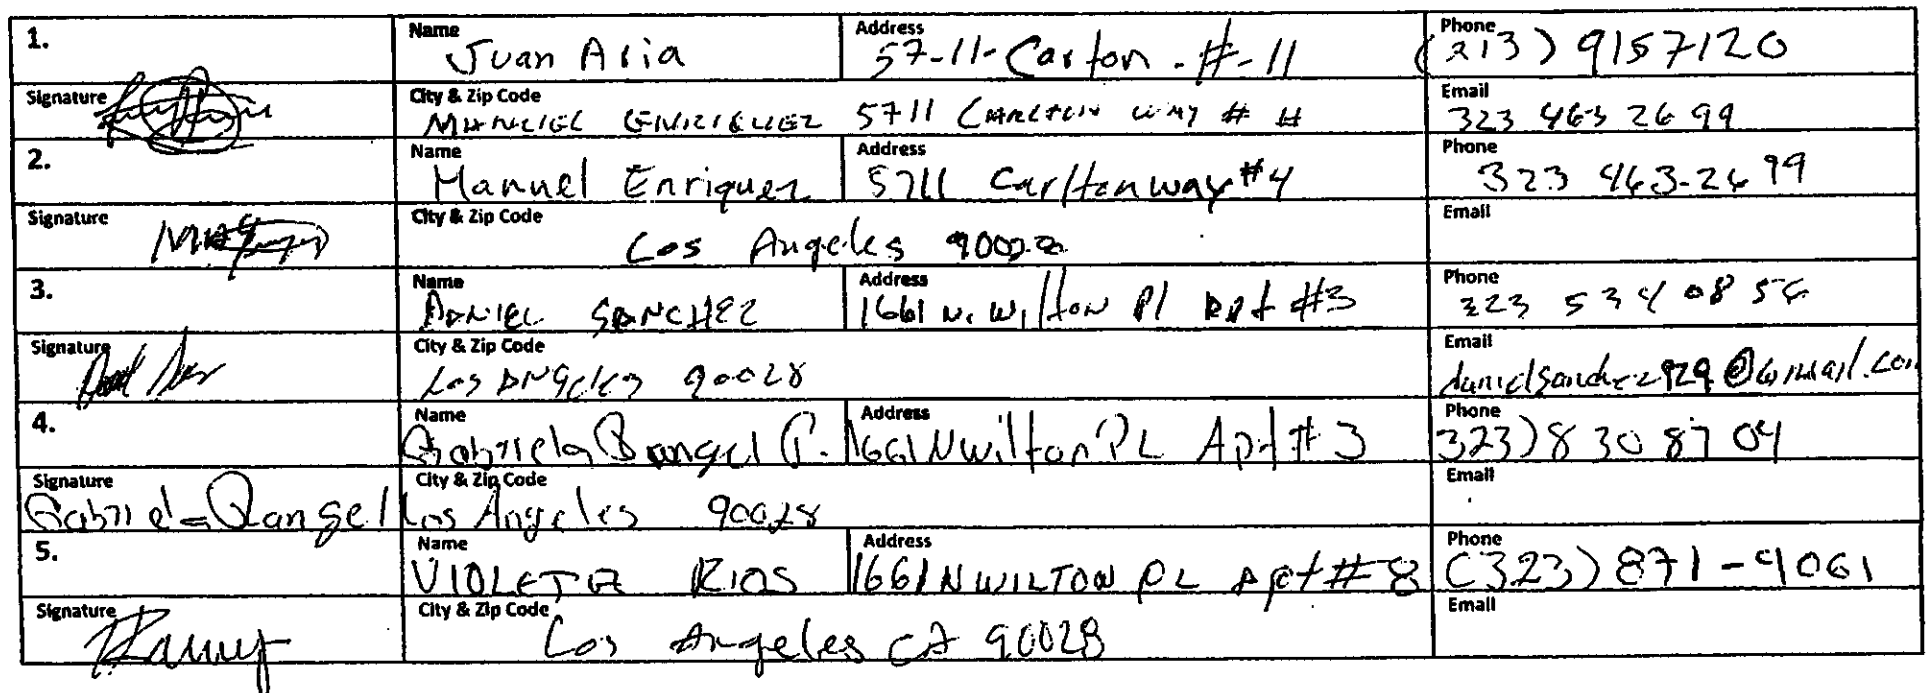 1. Name Juan Aria Address 57-11-Carlton-#-11 Phone (213) 9157120
Signature City & Zip Code MANUEL ENRIQUEZ 5711 CARLTON WAY # 4 Email 323 463 2699
2. Name Manuel Enriquez Address 5711 Carlton way #4 Phone 323 463-2699
Signature City & Zip Code Los Angeles Email
3. Name DANIEL SANCHEZ Address 1661 N. Wilton Pl Apt #3 Phone 323 534 0856
Signature City & Zip Code Los Angeles 90028 Email danielsanchez929@Gmail.com
4. Name Gabriela Rangel P. Address 1661 N wilton PL Apt # 3 Phone 323) 830 8704
Signature Gabriela Rangel City & Zip Code Los Angeles 90028 Email
5. Name VIOLETA RIOS Address 1661 N WILTON PL Apt # 8 Phone (323) 871-9061
Signature City & Zip Code Los Angeles CA 90028 Email